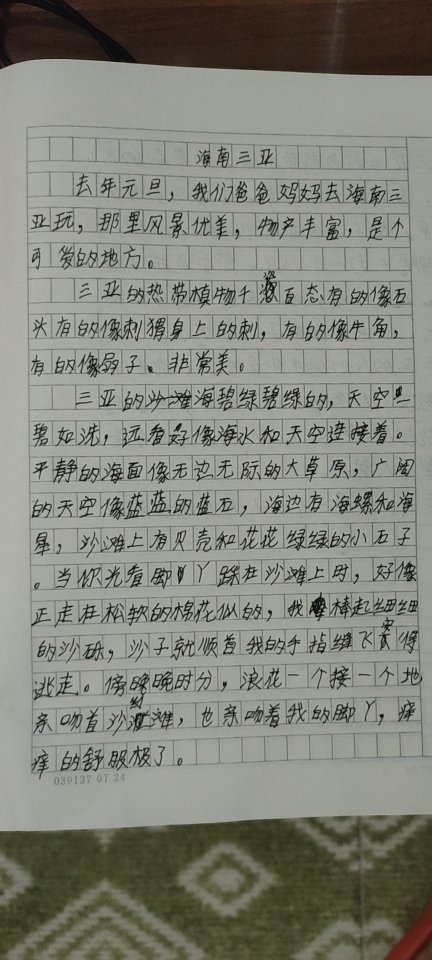 海南三亚
去年元旦，我们爸爸妈妈去海南三
亚玩，那里风景优美，物产丰富，是个
可爱的地方。
三亚的热带植物千姿百态有的像石
头有的像刺猬身上的刺，有的像牛角，
有的像扇子、非常美。
三亚的海碧绿碧绿的，天空
碧如洗，远看好像海水和天空连接着。
平静的海面像无边无际的大草原，广阔
的天空像蓝蓝的蓝石，海边有海螺和海
星，沙滩上有贝壳和花花绿绿的小石子
。当你光着脚丫踩在沙滩上时，好像
正走在松软的棉花似的，我棒起细细
的沙砾，沙子就顺着我的手指缝飞似得
逃走。傍晚时分，浪花一个接一个地
亲吻着沙滩，也亲吻着我的脚丫，痒
痒的舒服极了。
039137 07 24